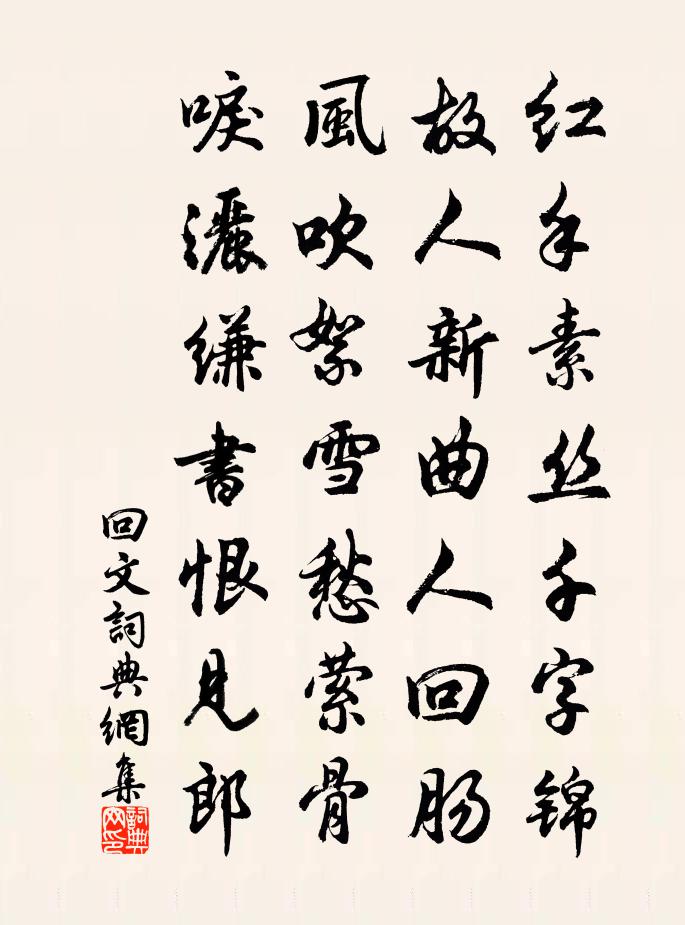 红手素丝千字锦
故人新曲人回肠
風吹絮雪愁萦骨
唳灑缣書恨見郎
回文詞典網集
詞典网印